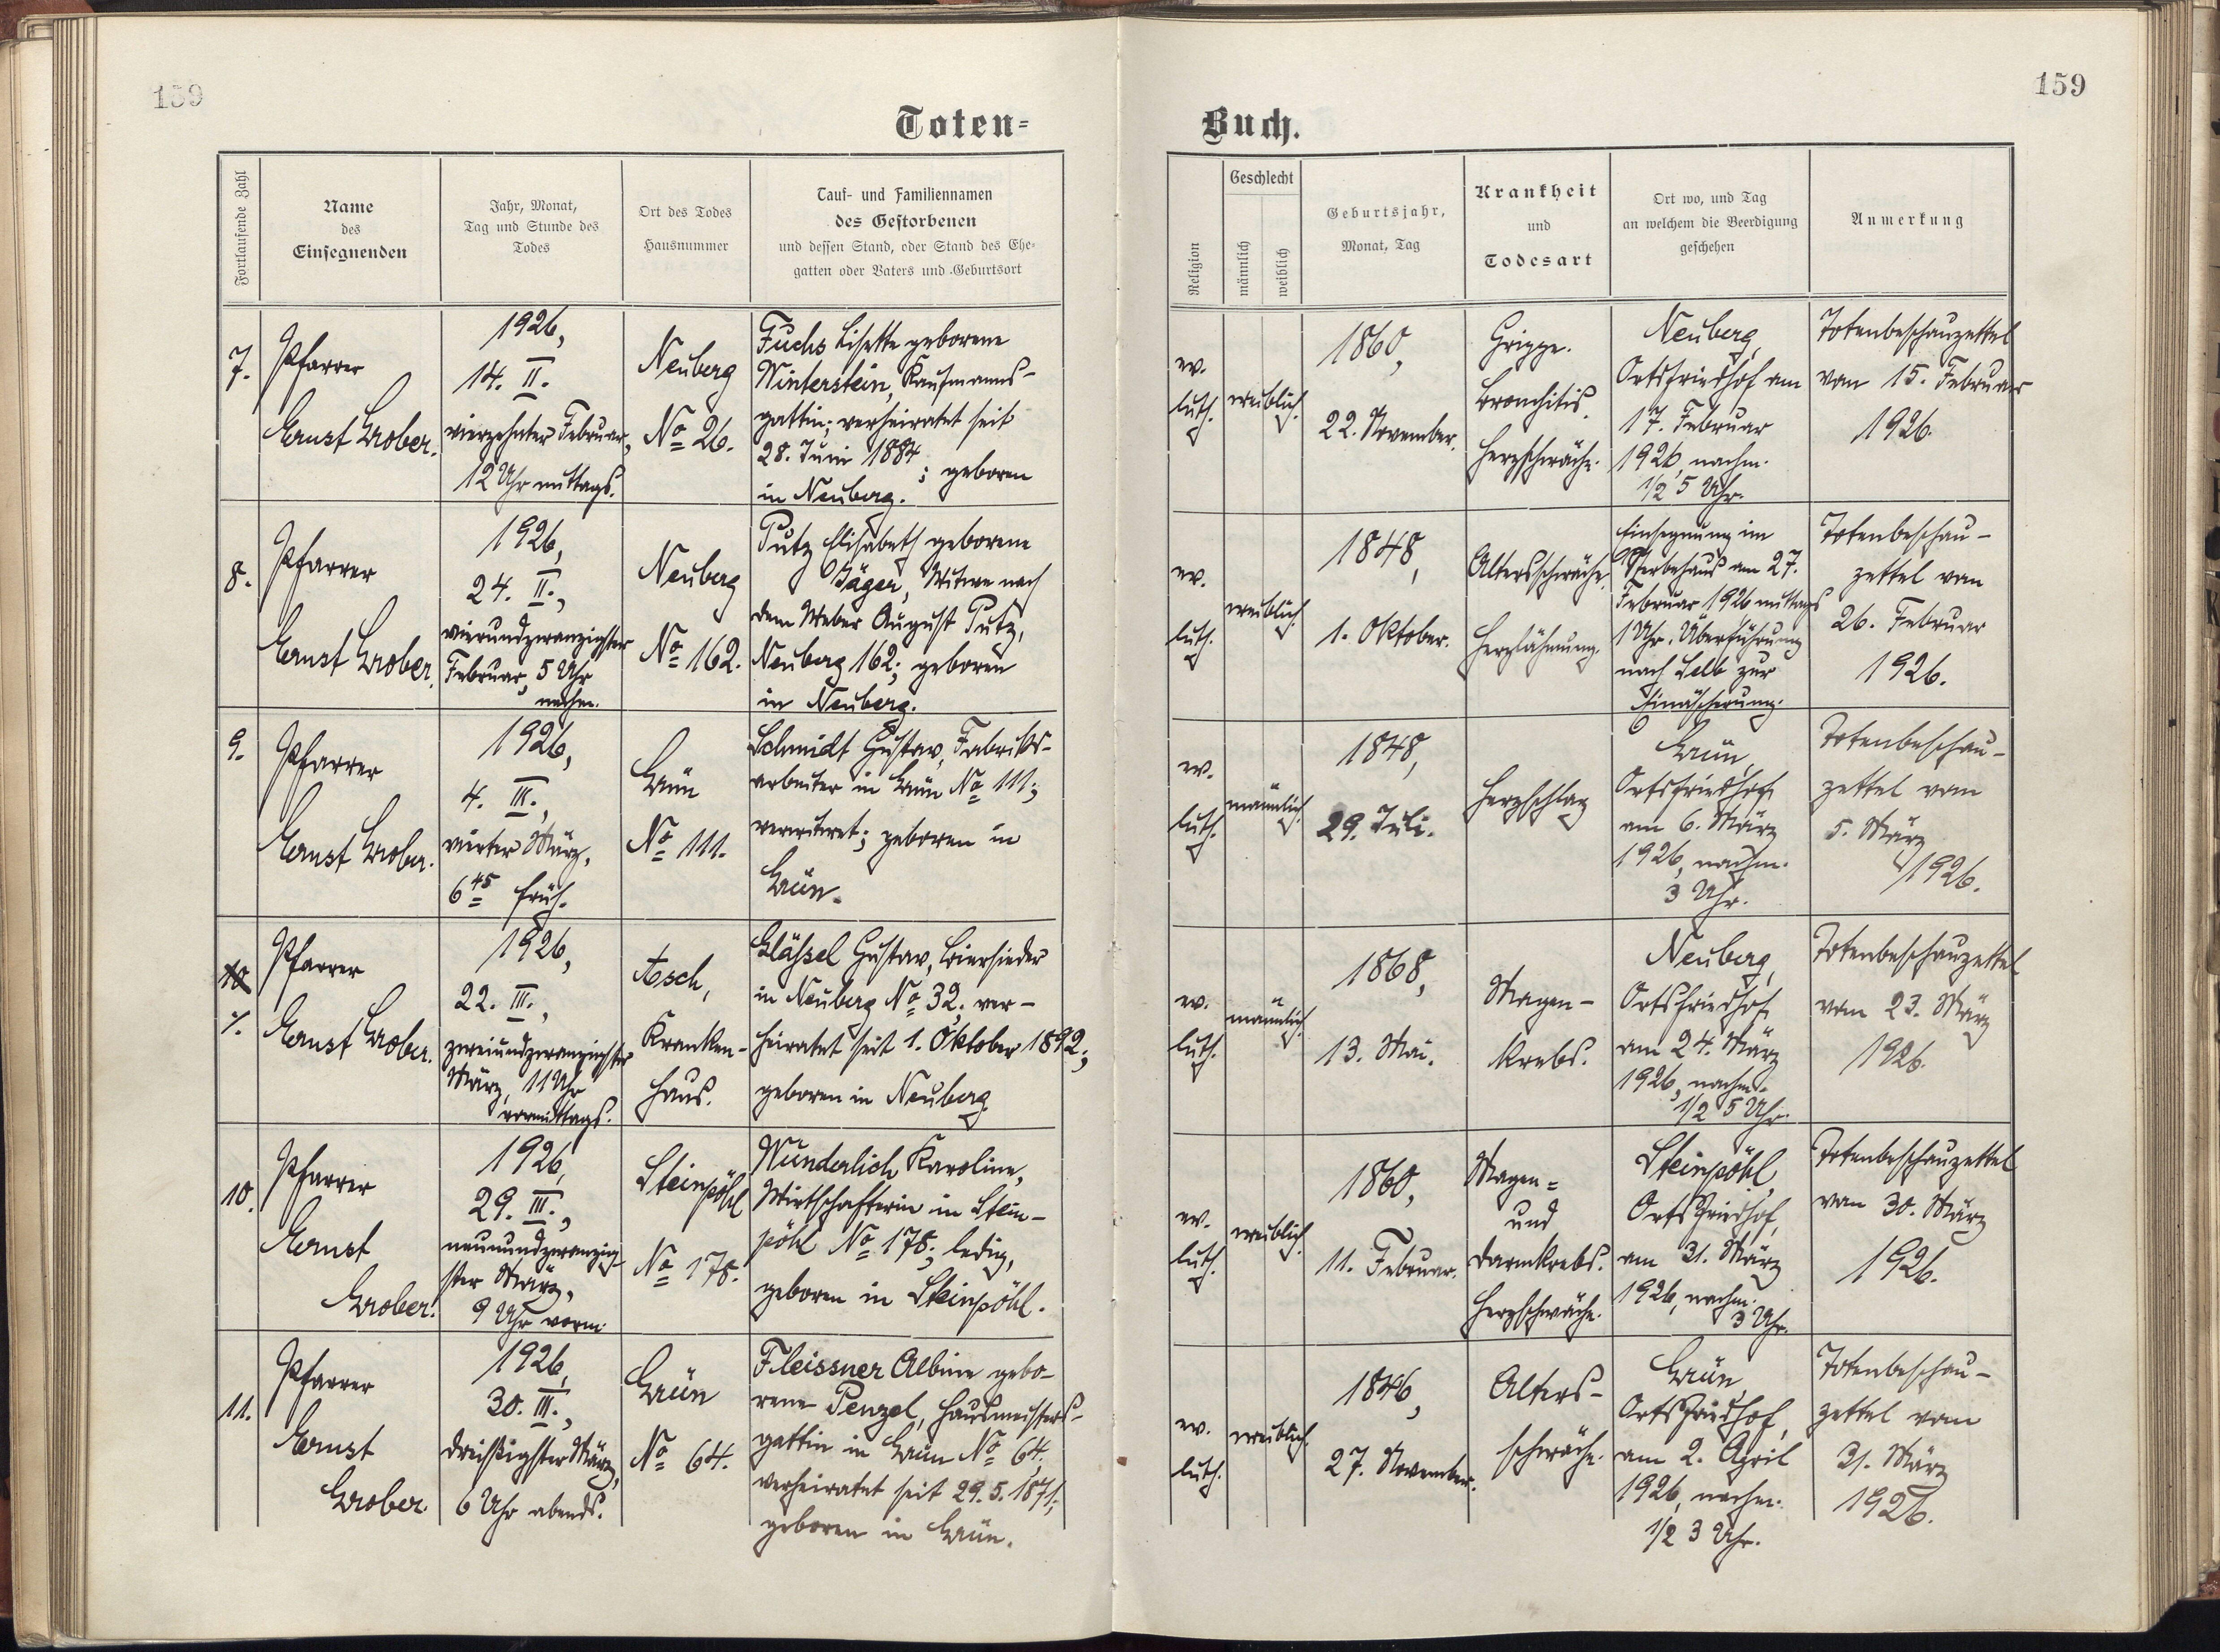 159
Toten-
Fortlaufende Zahl
Name
des
Einsegnenden
Jahr, Monat,
Tag und Stunde des
Todes
Ort des Todes
Hausnummer
Tauf- und Familiennamen
des Gestorbenen
und dessen Stand, oder Stand des Ehe-
gatten oder Vaters und Geburtsort
7.
Pfarrer
Ernst Grober.
1926,
14. II.
vierzehnter Februar,
12 Uhr mittags.
Neuberg
No 26.
Fuchs Lisette geborene
Winterstein, Kaufmanns-
gattin; verheiratet seit
28. Juni 1884; geboren
in Neuberg.
8.
Pfarrer
Ernst Grober.
1926,
24. II.,
vierundzwanzigster
Februar, 5 Uhr
nachm.
Neuberg
No 162.
Putz Elisabeth geborene
Jäger, Witwe nach
dem Weber August Putz,
Neuberg 162; geboren
in Neuberg.
9.
Pfarrer
Ernst Grober.
1926,
4. III.,
vierter März,
6 45 früh.
Grün
No 111.
Schmidt Gustav, Fabriks-
arbeiter in Grün No 111;
verwitwet; geboren in
Grün.
10
Pfarrer
Ernst Grober.
1926,
22. III.,
zweiundzwanzigster
März, 11 Uhr
vormittags.
Asch,
Kranken-
haus.
Gläßel Gustav, Biersieder
in Neuberg No 32, ver-
heiratet seit 1. Oktober 1892;
geboren in Neuberg.
10.
Pfarrer
Ernst
Grober.
1926,
29. III.,
neunundzwanzig-
ster März,
9 Uhr vorm.
Steinpöhl
No 178.
Wunderlich Karoline,
Wirtschafterin in Stein-
pöhl No 178; ledig,
geboren in Steinpöhl.
11.
Pfarrer
Ernst
Grober.
1926,
30. III.,
dreißigster März,
6 Uhr abends.
Grün
No 64.
Fleissner Albine gebo-
rene Penzel, Hausmeisters-
gattin in Grün No 64,
verheiratet seit 29. 5. 1871;
geboren in Grün.
159
Buch.
Religion
Geschlecht
männlich
weiblich
Geburtsjahr,
Monat, Tag
Krankheit
und
Todesart
Ort wo, und Tag
an welchem die Beerdigung
geschehen
Anmerkung
ev.
luth.
weiblich.
1860,
22. November.
Grippe.
Bronchitis.
Herzschwäche.
Neuberg,
Ortsfriedhof am
17. Februar
1926, nachm.
1/2 5 Uhr.
Totenbeschauzettel
vom 15. Februar
1926.
ev.
luth.
weiblich.
1848,
1. Oktober.
Altersschwäche.
Herzlähmung.
Einsegnung im
Sterbehaus am 27.
Februar 1926 mittags
1 Uhr. Überführung
nach Selb zur
Einäscherung.
Totenbeschau-
zettel vom
26. Februar
1926.
ev.
luth.
männlich.
1848,
29. Juli.
Herzschlag
Grün,
Ortsfriedhof
am 6. März
1926, nachm.
3 Uhr.
Totenbeschau-
zettel vom
5. März
1926.
ev.
luth.
männlich.
1868,
13. Mai.
Magen-
krebs.
Neuberg,
Ortsfriedhof,
am 24. März
1926, nachm.
1/2 5 Uhr.
Totenbeschauzettel
vom 23. März
1926.
ev.
luth.
weiblich.
1860,
11. Februar.
Magen-
und
Darmkrebs.
Herzschwäche.
Steinpöhl,
Ortsfriedhof,
am 31. März
1926, nachm.
3 Uhr.
Totenbeschauzettel
vom 30. März
1926.
ev.
luth.
weiblich.
1846,
27. November.
Alters-
schwäche.
Grün
Ortsfriedhof,
am 2. April
1926, nachm.
1/2 3 Uhr.
Totenbeschau-
zettel vom
31. März
1926.